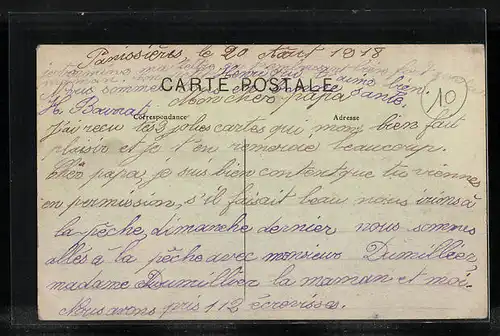 Panissières, le 20 Août 1918
Henri qui t'aime bien.
Nous sommes en bonne santé.
CARTE POSTALE
Mon cher papa
H. Bavrat
10
Correspondance
Adresse
J'ai reçu tes 3 jolies cartes qui m'on bien fait
plaisir et je t'en remercie beaucoup.
Cher papa, je suis bien content que tu viennes
en permission, s'il faisait beau nous irions à
la pêche, dimanche dernier nous sommes
allés à la pêche avec monsieur Dumillier,
madame Doumillier la maman et moi.
Nous avons pris 112 écrevisses.